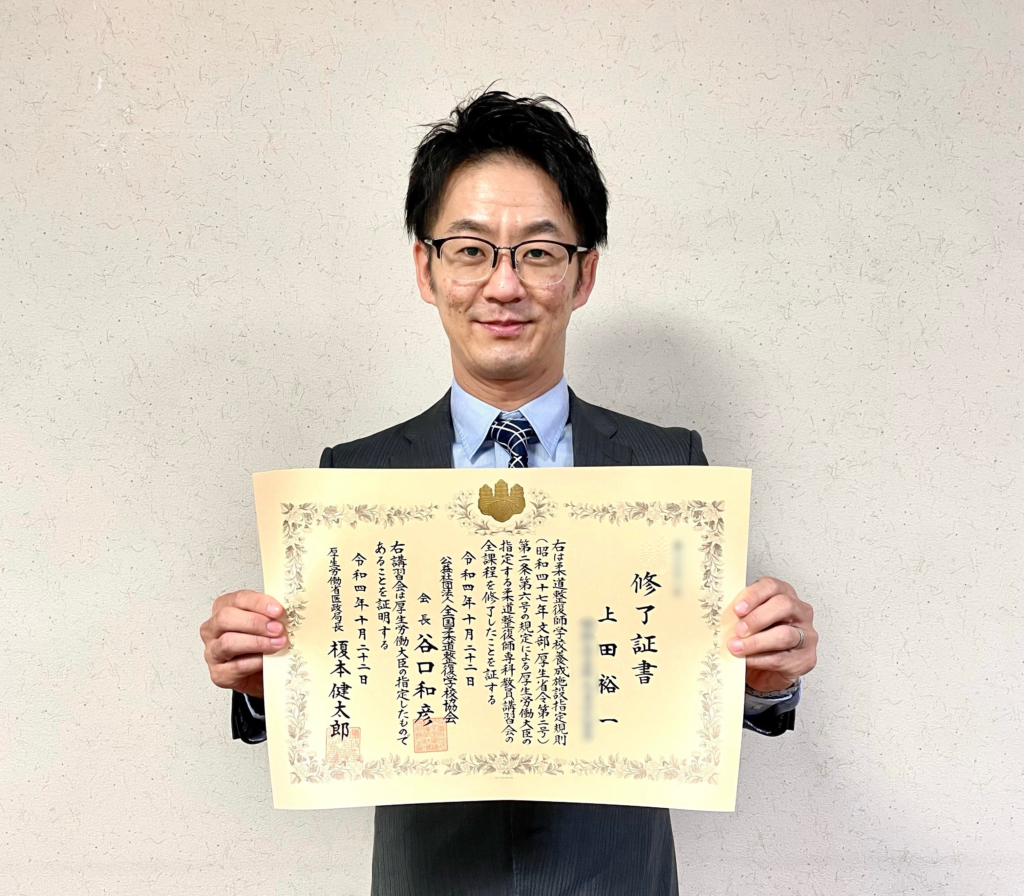 修了証書
上田裕一
右は柔道整復師学校養成施設指定規則
(昭和四十七年文部・厚生省令第二号)
第二条第六号の規定による厚生労働大臣の
指定する柔道整復師専科教員講習会の
全課程を修了したことを証する
令和四年十月二十二日
公益社団法人全国柔道整復学校協会
会長 谷口和彦
右講習会は厚生労働大臣の指定したもので
あることを証明する
令和四年十月二十二日
厚生労働省医政局長 榎本健太郎